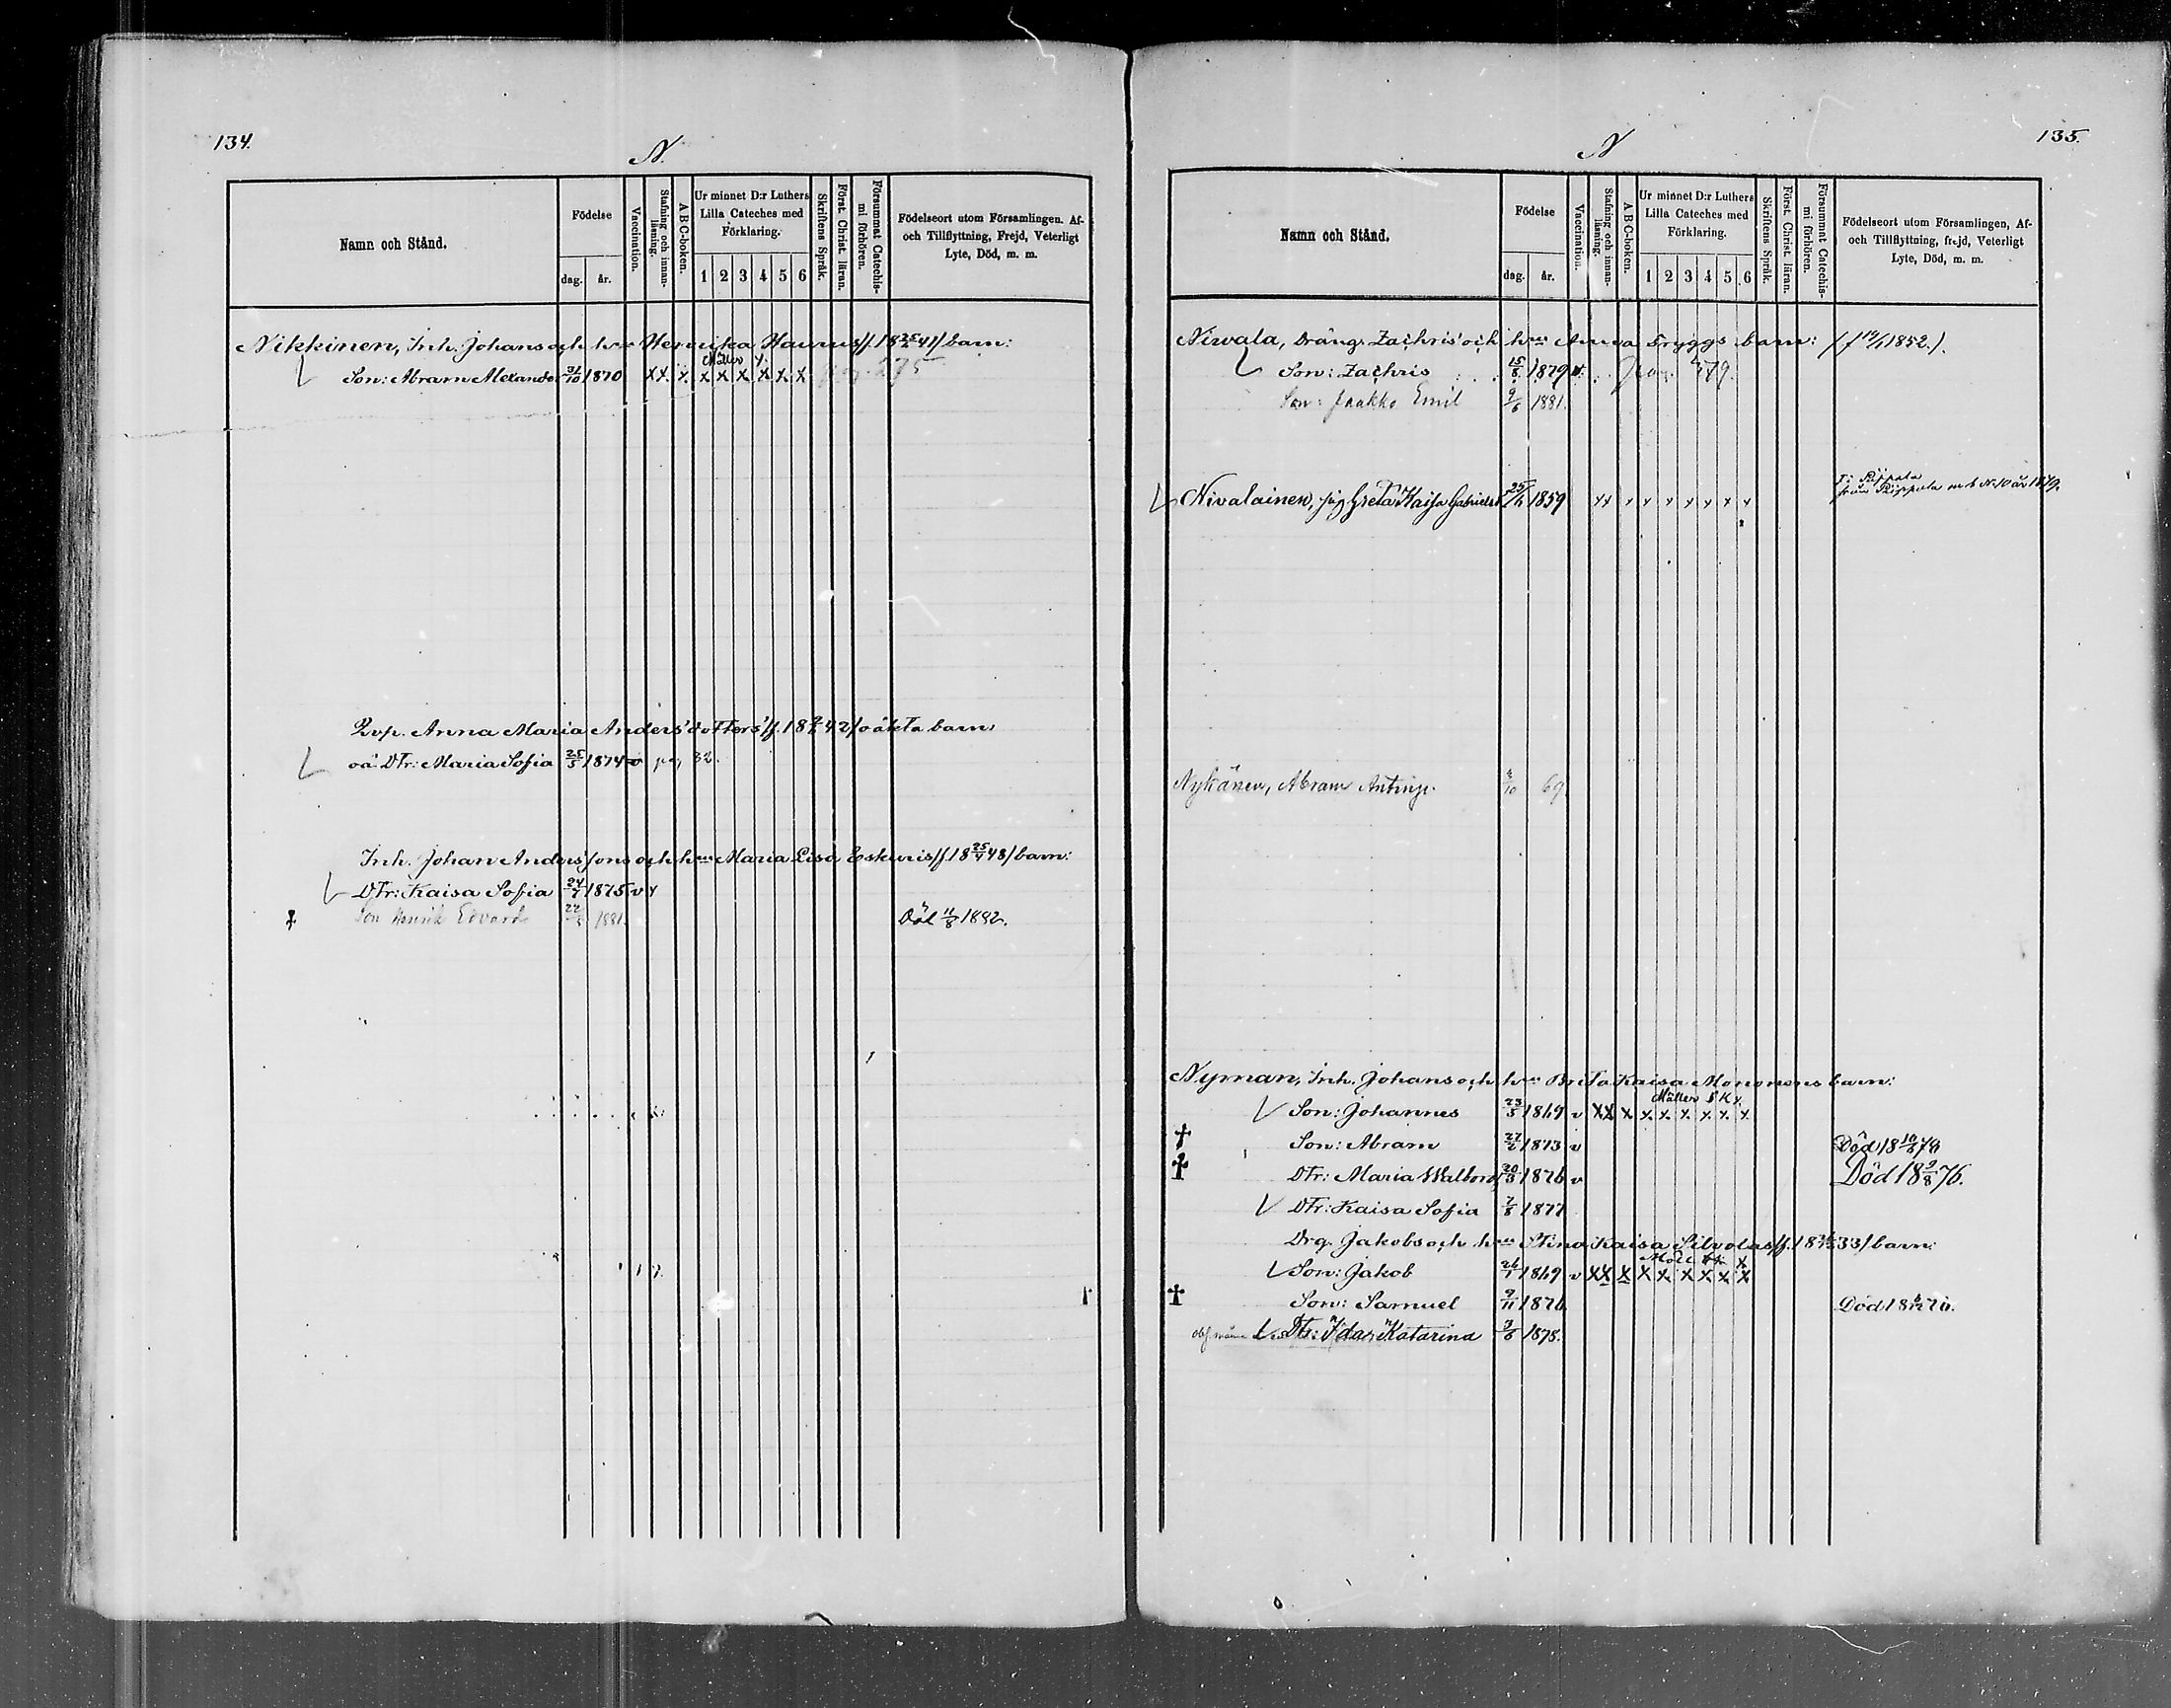 134.
N.
Namn och Stånd.
Födelse
dag.
år.
Vaccination.
Stafning och innan-
läsning.
A B C-boken.
Ur minnet D:r Luthers
Lilla Cateches med
Förklaring.
1 2 3 4 5 6
Skriftens Språk.
Först. Christ. läran.
Försummat Catechis-
mi förhören.
Födelseort utom Församlingen. Af-
och Tillflyttning, Frejd, Veterligt
Lyte, Död, m. m.
Nikkinen, Inh. Johans och h:s Henrika Haunus /f. 18 41/ barn:
Son: Abram Alexander 31/10 1870 xx. x. x x x x x x pag. 275
Anna Maria Anders'dotters /f. 18 42/ oäkta barn
oä. Dtr: Maria Sofia 25/5 1874 v pag 32.
Inh. Johan Anders'sons och h:us Maria Lisa Eskuris /f. 18 25/4 48/ barn:
Dtr: Kaisa Sofia 24/7 1875 v x
† Son Henrik Edvard 1881. Död 11/8 1882.
135.
N
Namn och Stånd.
Födelse
dag.
år.
Vaccination.
Stafning och innan-
läsning.
A B C-boken.
Ur minnet D:r Luthers
Lilla Cateches med
Förklaring.
1 2 3 4 5 6
Skriftens Språk.
Först. Christ. läran.
Försummat Catechis-
mi förhören.
Födelseort utom Församlingen, Af-
och Tillflyttning, frejd, Veterligt
Lyte, Död, m. m.
Niwala, Dräng. Zachris' och h:us Anna Fryggs barn: (f 1852.).
Son: Zachris 15/8 1879 v. pag. 379.
Son: Jaakko Emil 9/6 1881.
Nivalainen, pig Greta Kaisa Gabrielsd 1859 xx x x x x x x x från Pippola m. b. No 10 år 1879.
Nykänen, Abram Antinp. 4/10 69.
Nyman, Inh. Johans och h:us Brita Kaisa Mononens barn:
Son: Johannes 23/5 1869 v xx x x x x x x x
† Son: Abram 1873 v Död 18
† Dtr: Maria Walborg 20/3 1876 v Död 18 9/8 76.
Dtr: Kaisa Sofia 7/8 1877
Drg. Jakobs och h:us Stina Kaisa Silvolas /f. 18 33/ barn:
Son: Jakob 26/1 1869 v xx x x x x x x x
† Son: Samuel 9/11 1876. Död 18 76.
Dtr: Ida Katarina 3/6 1878.